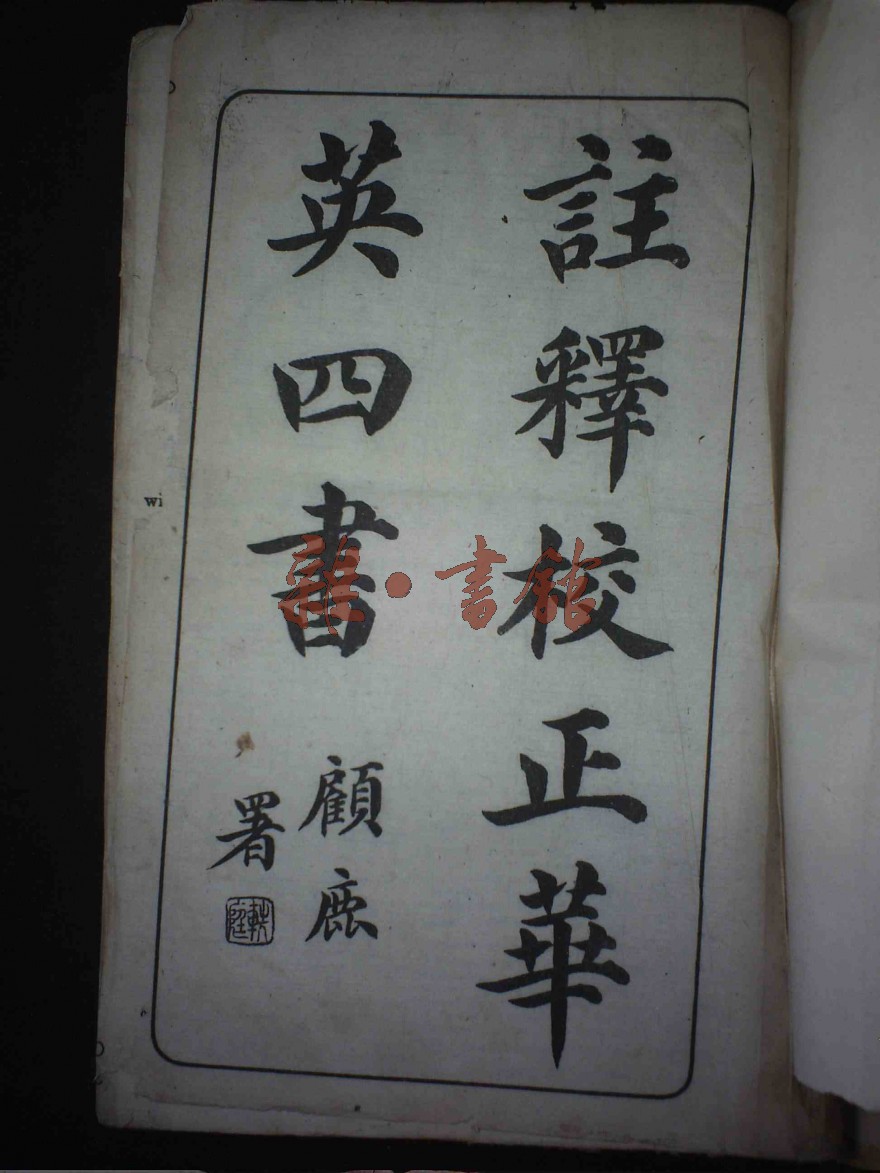 註釋校正華
英四書
顧鹿
署
wi
書館